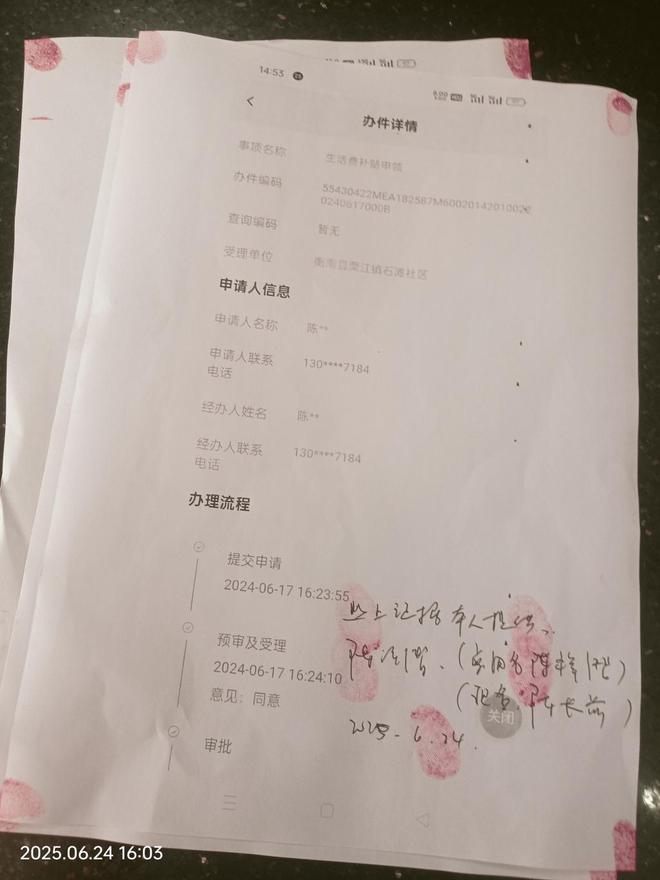 14:53
办件详情
事项名称 生活费补贴申领
办件编码 55430422MEA182587M60020142010022
0240617000B
查询编码 暂无
受理单位 衡南县栗江镇石滩社区
申请人信息
申请人名称 陈**
申请人联系 130****7184
电话
经办人姓名 陈**
经办人联系 130****7184
电话
办理流程
提交申请
2024-06-17 16:23:55
预审及受理
2024-06-17 16:24:10
意见：同意
审批
以上证据本人提供、
2025-6.24.
关闭
2025.06.24 16:03